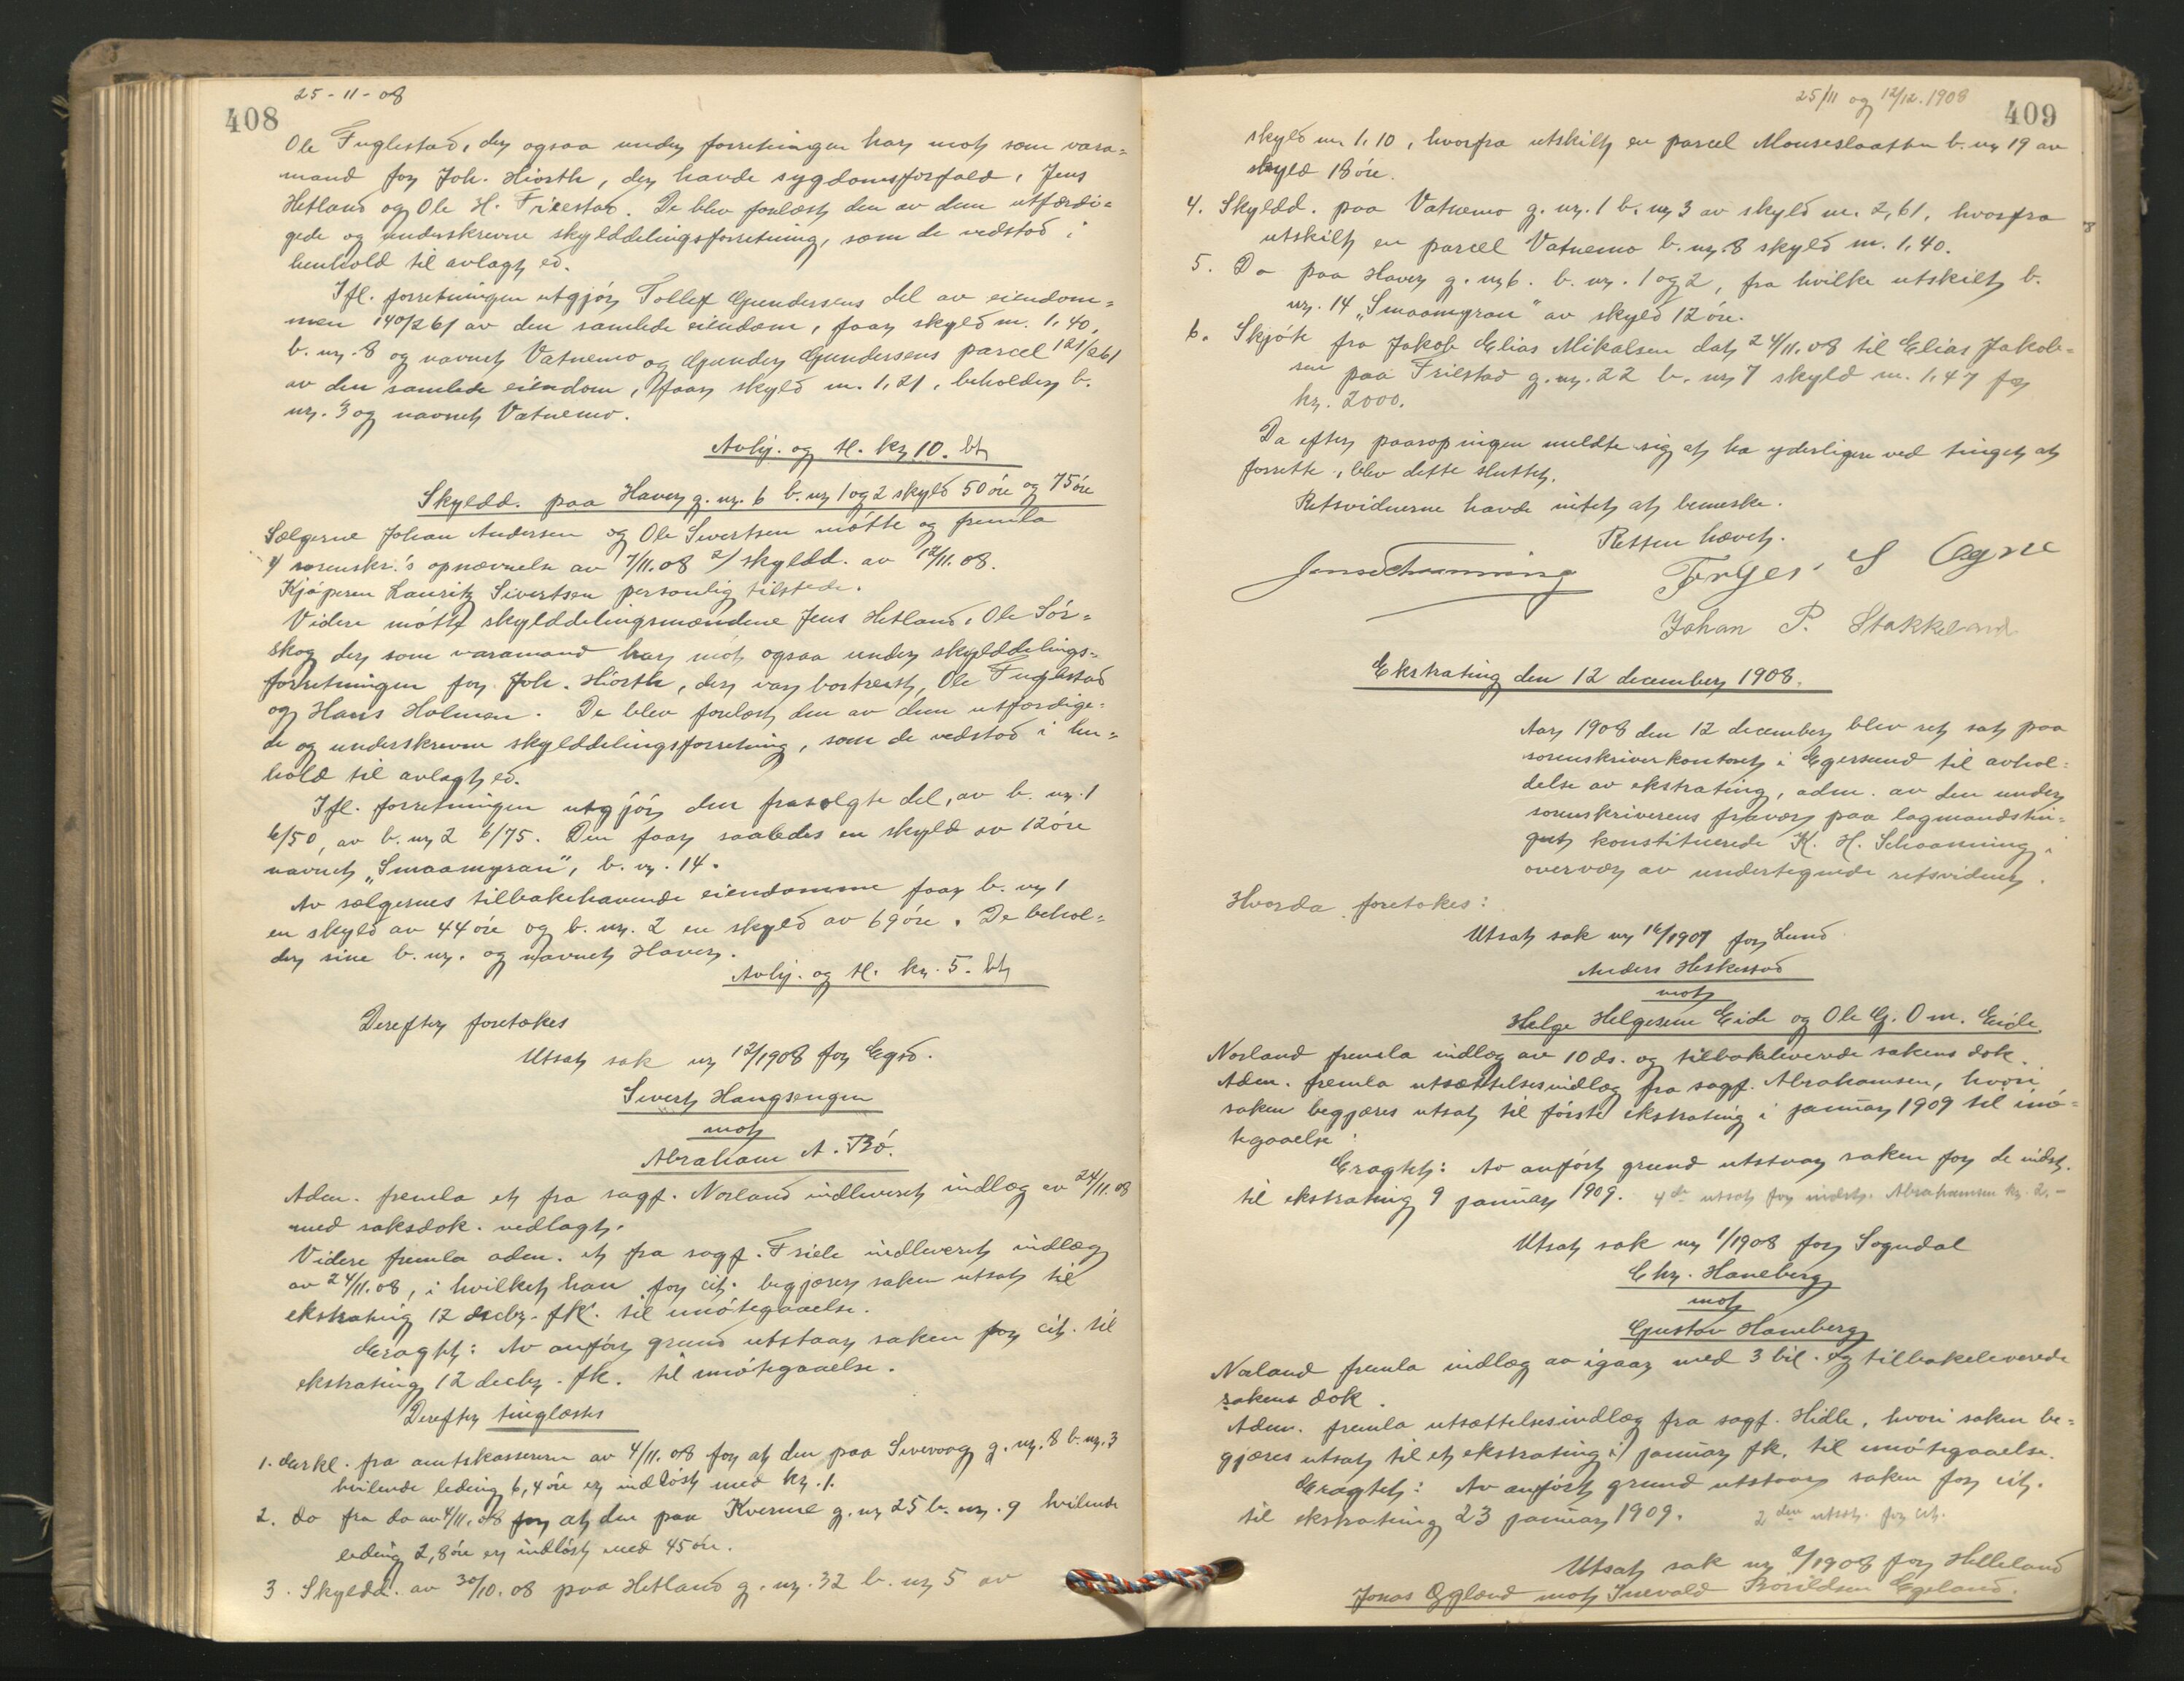 25-11-08
408
Ole Fuglestad, der ogsaa under forretningen har møtt som vara=
mand for Joh. Hiorth, der havde sygdomsforfald, Jens
Hetland og Ole H. Friestad. De blev forelæst den av dem utfærdi=
gede og underskrevne skylddelingsforretning, som de vedstod i
henhold til avlagt ed.
Ifl. forretningen utgjør Tollef Gundersens del av eiendom=
men 140/261 av den samlede eiendom, faar skyld m. 1,40,
b. nr. 8 og navnet Vatnemo og Gunder Gundersens parcel 121/261
av den samlede eiendom, faar skyld m. 1,21, beholder b.
nr. 3 og navnet Vatnemo.
Avhj. og tl. kr 10. bt
Skyldd. paa Haver g. nr. 6 b. nr 1 og 2 skyld 50 øre og 75 øre
Sælgerne Johan Andersen og Ole Sivertsen møtte og fremla
1/ sorenskr.'s opnævnelse av 7/11.08 2/ skyldd. av 12/11.08.
Kjøperen Lauritz Sivertsen personlig tilstede.
Videre møtte skylddelingsmændene Jens Hetland, Ole Sør=
skog der som varamand har møtt ogsaa under skylddelings=
forretningen for Joh. Hiorth, der var bortreist, Ole Fuglestad
og Hans Holmen. De blev forelæst den av dem utfærdige=
de og underskrevne skylddelingsforretning, som de vedstod i hen=
hold til avlagt ed.
Ifl. forretningen utgjør den frasolgte del, av b. nr. 1
6/50, av b. nr 2 6/75. Den faar saaledes en skyld av 12 øre
navnet „Smaamyran", b. nr. 14.
Av sælgernes tilbakehavende eiendomme faar b. nr 1
en skyld av 44 øre og b. nr. 2 en skyld av 69 øre. De behol=
der sine b. nr. og navnet Haver.
Avhj. og tl. kr. 5. bt
Derefter foretokes
Utsat sak nr 12/1908 for Egsd.
Sivert Haugsengen
mot
Abraham A. Bø.
Adm. fremla et fra sagf. Norland indleveret indlæg av 24/11.08
med saksdok. vedlagt.
Videre fremla adm. et fra sagf. Friele indleveret indlæg
av 24/11.08, i hvilket han for cit. begjærer saken utsat til
ekstrating 12 decbr. fk. til imøtegaaelse.
Eragtet: Av anført grund utstaar saken for cit. til
ekstrating 12 decbr. fk. til imøtegaaelse.
Derefter tinglæstes
1. Erkl. fra amtskassereren av 4/11.08 for at den paa Sirevaag g. nr. 8 b. nr. 3
hvilende leding 6,4 øre er indløst med kr. 1.
2. do fra do av 4/11.08 for at den paa Kverme g. nr 25 b. nr. 9 hvilende
leding 2,8 øre er indløst med 45 øre.
3. Skyldd. av 30/10.08 paa Hetland g. nr. 32 b. nr 5 av
25/11 og 12/12.1908
409
skyld m. 1,10, hvorfra utskilt en parcel Mouseslaatten b. nr 19 av
skyld 18 øre.
4. Skyldd. paa Vatnemo g. nr. 1 b. nr 3 av skyld m. 2,61, hvorfra
utskilt en parcel Vatnemo b. nr. 8 skyld m. 1,40.
5. Do paa Haver g. nr 6. b. nr. 1 og 2, fra hvilke utskilt b.
nr. 14 „Smaamyran" av skyld 12 øre.
6. Skjøte fra Jakob Elias Mikalsen dat 24/11.08 til Elias Jakob=
sen paa Friestad g. nr. 22 b. nr 7 skyld m. 1,47 for
kr. 2000.
Da efter paaropingen meldte sig at ha yderligere ved tinget at
forrette, blev dette sluttet.
Retsvidnerne havde intet at bemerke.
Retten hævet.
Jens Schanning
S Ogne
Johan P. Stokkeland
Ekstrating den 12 december 1908.
Aar 1908 den 12 december blev ret sat paa
sorenskriverkontoret i Egersund til avhol=
delse av ekstrating, adm. av den under
sorenskriverens fravær paa lagmandstin=
get konstituerede K. H. Schanning i
overvær av undertegnede retsvidner.
Hvorda foretokes:
Utsat sak nr 16/1907 for Lund
Anders Heskestad
mot
Helge Helgesen Eide og Ole G. O m. Eide.
Norland fremla indlæg av 10 ds. og tilbakeleverede sakens dok.
Adm. fremla utsættelsesindlæg fra sagf. Abrahamsen, hvori
saken begjæres utsat til første ekstrating i januar 1909 til imø=
tegaaelse.
Eragtet: Av anført grund utstaar saken for de indst.
til ekstrating 9 januar 1909. 4de utsat for indst. Abrahamsen kr. 2,-
Utsat sak nr 1/1908 for Sogndal
Chr. Haneberg
mot
Gustav Haneberg
Norland fremla indlæg av igaar med 3 bil. og tilbakeleverede
sakens dok.
Adm. fremla utsættelsesindlæg fra sagf. Hidle, hvori saken be=
gjæres utsat til et ekstrating i januar fk. til imøtegaaelse.
Eragtet: Av anført grund utstaar saken for cit.
til ekstrating 23 januar 1909. 2den utsst. for cit.
Utsat sak nr 2/1908 for Helleland
Jonas Øgland mot Inevald Bovildsen Egeland.